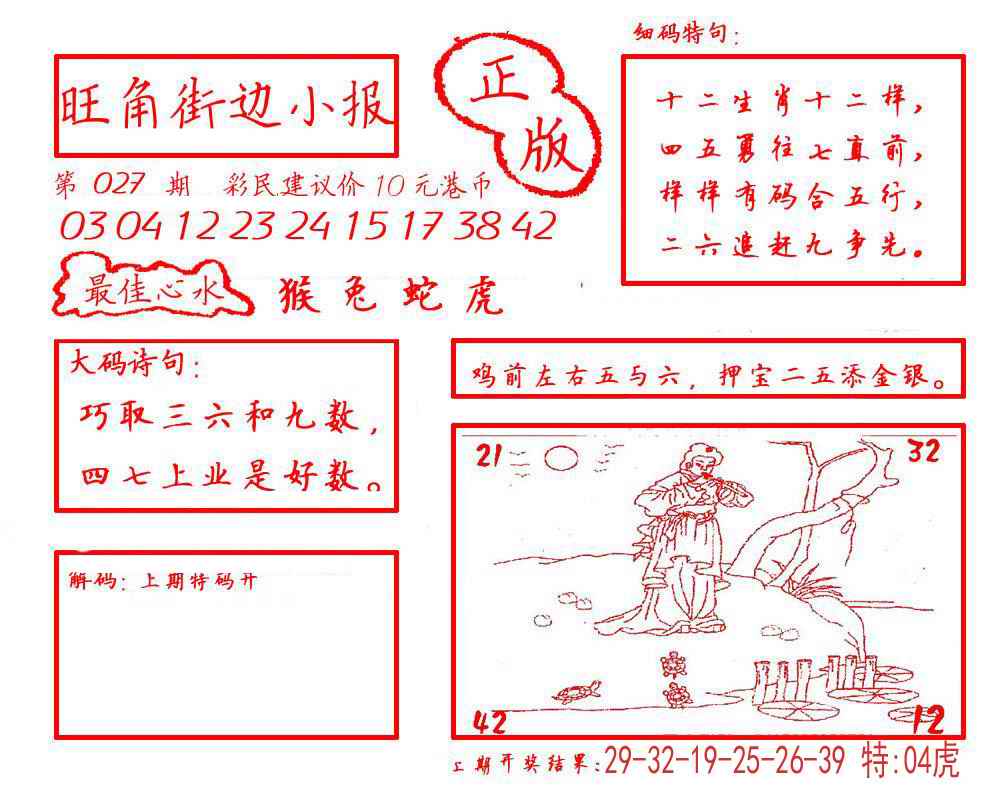 旺角街边小报
正版
第 027 期 彩民建议价 10 元港币
03 04 12 23 24 15 17 38 42
最佳心水 猴兔蛇虎
细码特句：
十二生肖十二样，
四五勇往七直前，
样样有码合五行，
二六追赶九争先。
大码诗句：
巧取三六和九数，
四七上业是好数。
鸡前左右五与六，押宝二五添金银。
解码：上期特码开
21 32
42 12
上期开奖结果：29-32-19-25-26-39 特:04虎